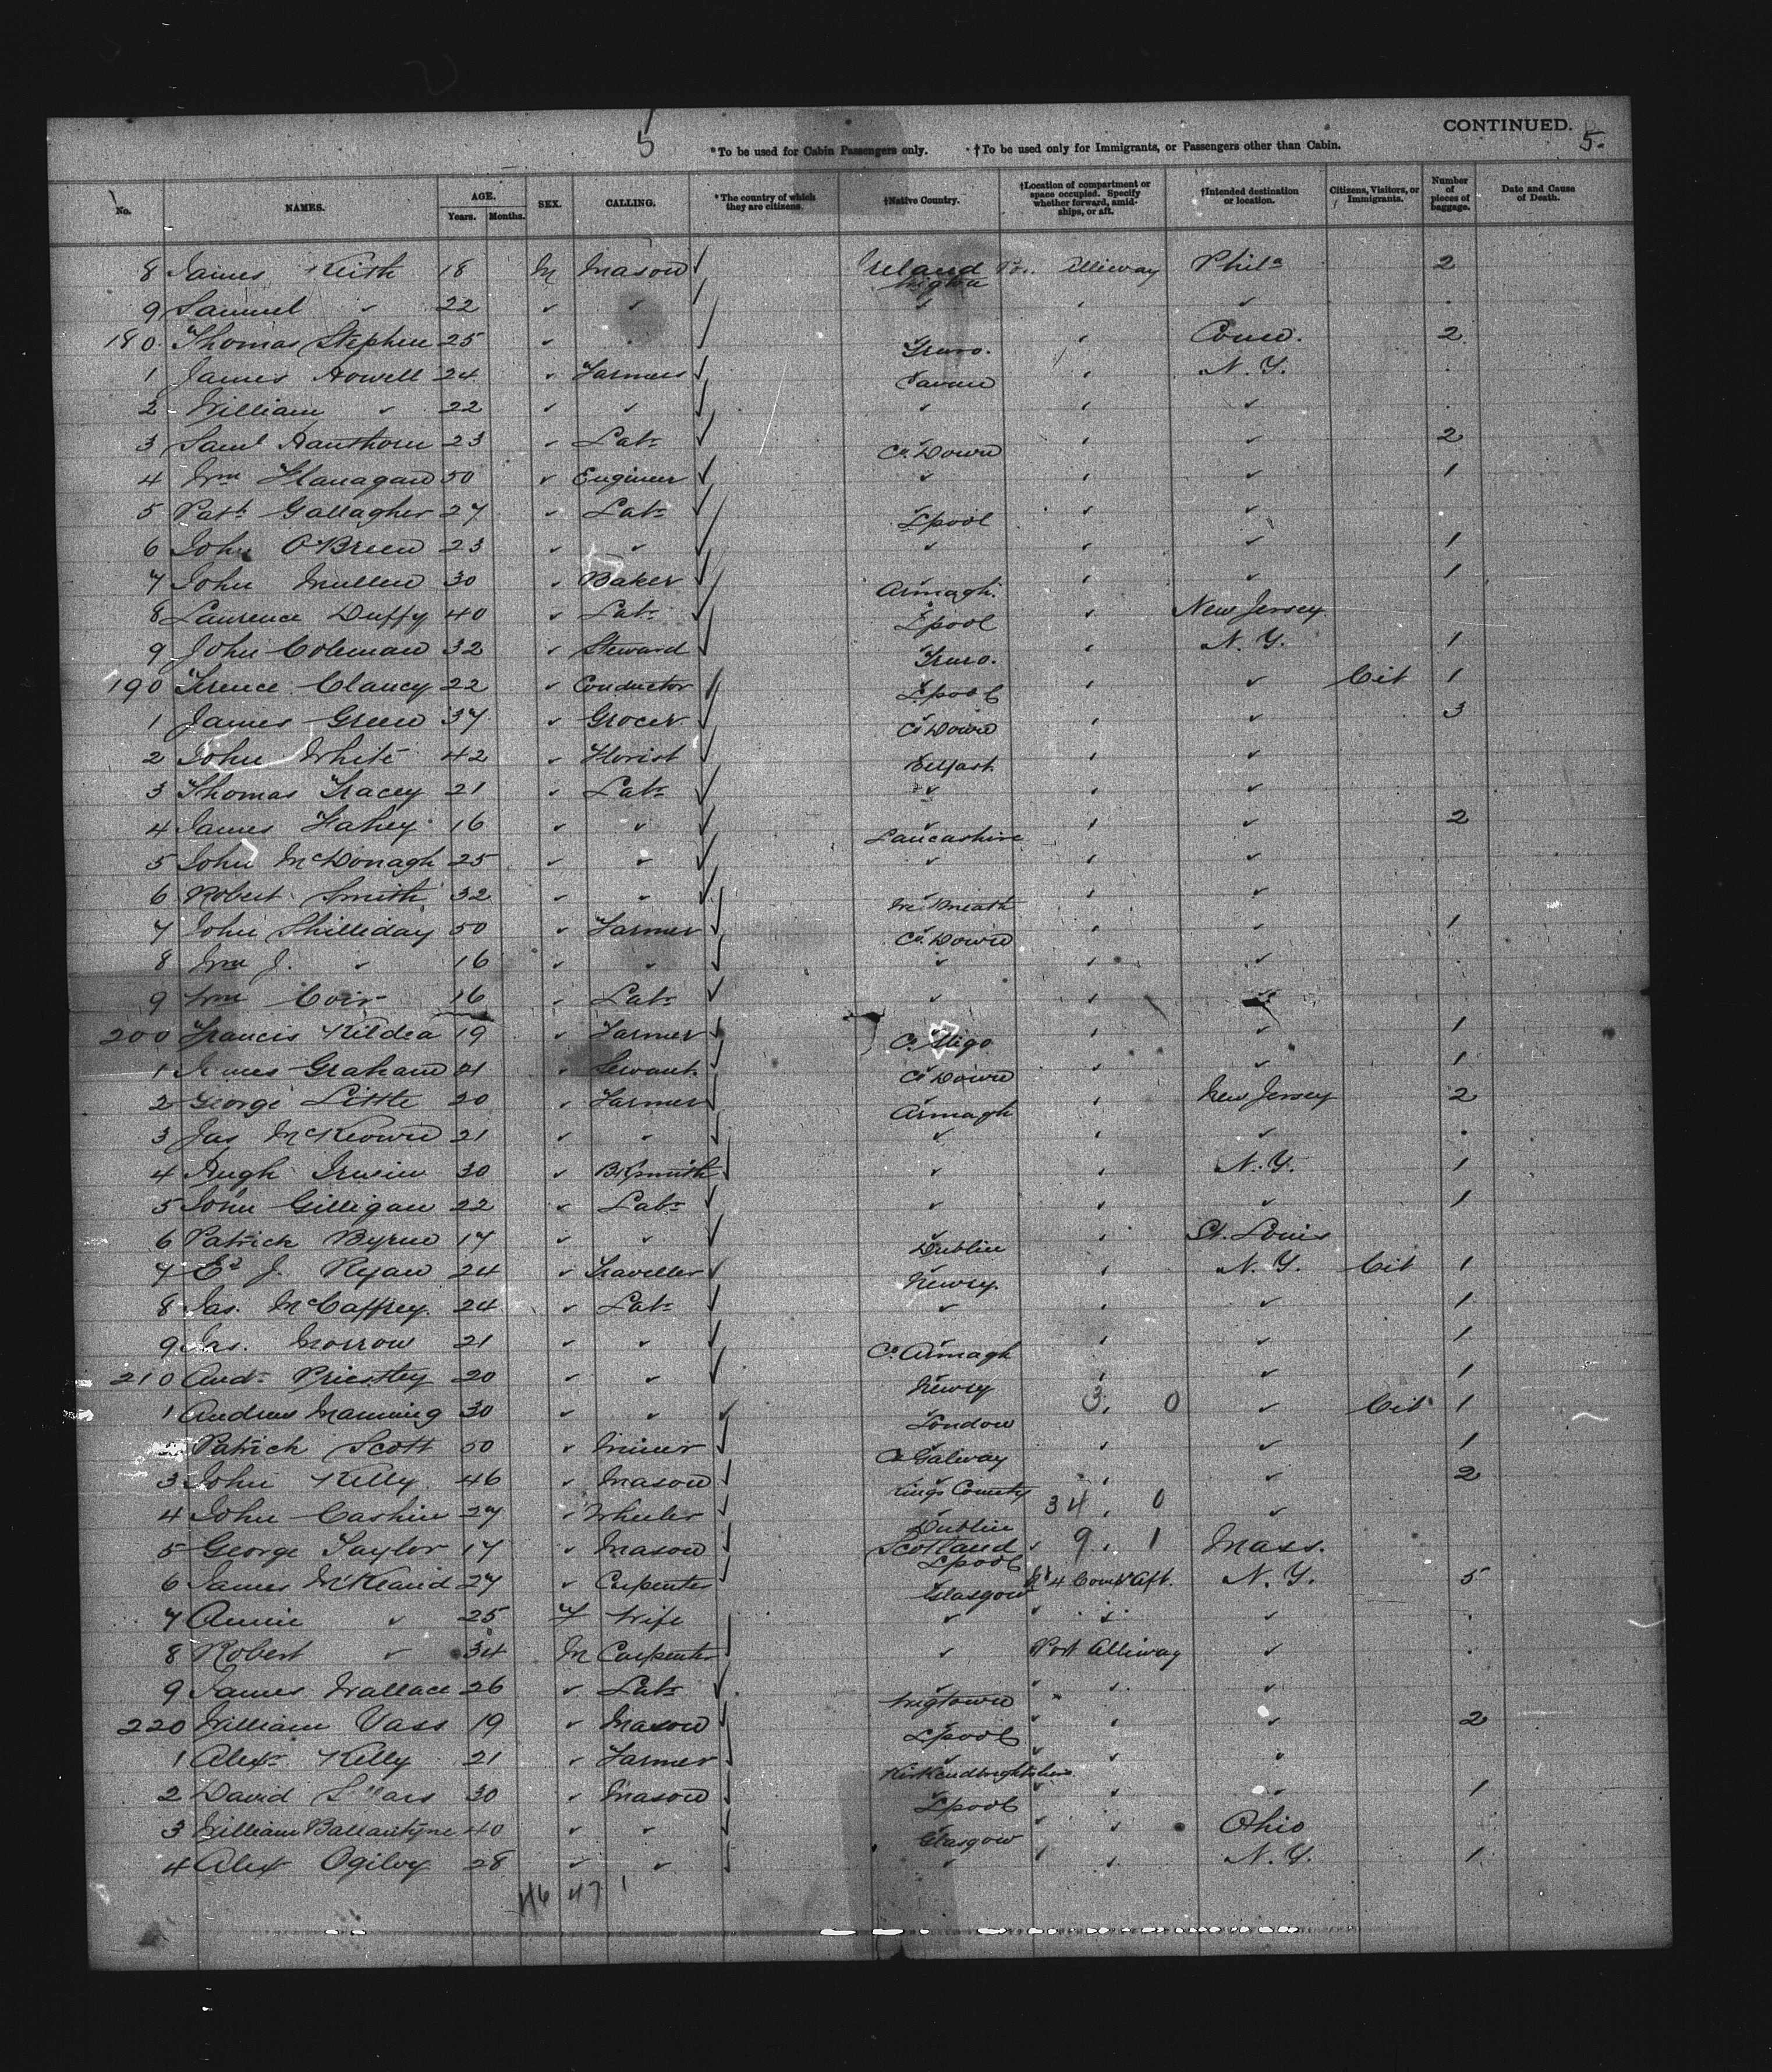 CONTINUED.
5
5.
*To be used for Cabin Passengers only. †To be used only for Immigrants, or Passengers other than Cabin.
No. NAMES. AGE. Years. Months. SEX. CALLING. *The country of which they are citizens. †Native Country. †Location of compartment or space occupied. Specify whether forward, amidships, or aft. †Intended destination or location. Citizens, Visitors, or Immigrants. Number of pieces of baggage. Date and Cause of Death.
8 James Keith 18 M Mason Ireland Alliway Phila 2
9 Samuel " 22 " " " " "
180 Thomas Stephen 25 " " Truro. " Conn. 2
1 James Howell 24 " Farmers Cavan " N.Y.
2 William " 22 " " " " "
3 Saml Hawthorn 23 " Labr Co Down " " 2
4 Wm Flanagan 50 " Engineer " " " 1
5 Patk Gallagher 27 " Labr Lpool " "
6 John O'Brien 23 " " " " " 1
7 John Mullen 30 " Baker Armagh. " " 1
8 Laurence Duffy 40 " Labr Lpool " New Jersey
9 John Coleman 32 " Steward Truro. " N.Y. 1
190 Terence Clancy 22 " Conductor Lpool " " Cit 1
1 James Green 37 " Grocer Co Down " " 3
2 John White 42 " Florist Belfast " "
3 Thomas Tracey 21 " Labr " " "
4 James Fahey 16 " " Lancashire " " 2
5 John McDonagh 25 " " " " "
6 Robert Smith 32 " " " "
7 John Shilliday 50 " Farmer Co. Down " " 1
8 Wm J. " 16 " " " " "
9 Wm Coir 16 " Labr " " "
200 Francis Kildea 19 " Farmer Co Sligo " " 1
1 James Graham 21 " Servant Co Down " " 1
2 George Little 20 " Farmer Armagh " New Jersey 2
3 Jas McKeown 21 " " " " "
4 Hugh Irwin 30 " Blksmith " " N.Y. 1
5 John Gilligan 22 " Labr " " " 1
6 Patrick Byrne 17 " " Dublin " St. Louis
7 Ed J. Ryan 24 " Traveller Newry. " N.Y. Cit 1
8 Jas. McCaffrey. 24 " Labr " " " 1
9 Jas. Morrow 21 " " Co Armagh " " 1
210 Andr Priestley 20 " " Newry " " 1
1 Andrew Manning 30 " " London 3 0 " Cit 1
Patrick Scott 50 " Miner Co Galway " " 1
3 John Kelly 46 " Mason Kings County " " 2
4 John Cashin 27 " Dublin 34 0 "
5 George Taylor 17 " Mason Scotland Lpool 9 1 Mass.
6 James 27 " Carpenter Glasgow 4 Aft. N.Y. 5
7 Annie " 25 F Wife " " "
8 Robert " 34 M Carpenter " Port Alliway "
9 James Wallace 26 " Labr Wigtown " "
220 William Vass 19 " Mason Lpool " " 2
1 Alexr Kelly 21 " Farmer Kirkcudbrightshire " "
2 David 30 " Mason Lpool " " 1
3 William Ballantyne 40 " " Glasgow " Ohio
4 Alex Ogilvy 28 " " " " N.Y. 1
46 47 1